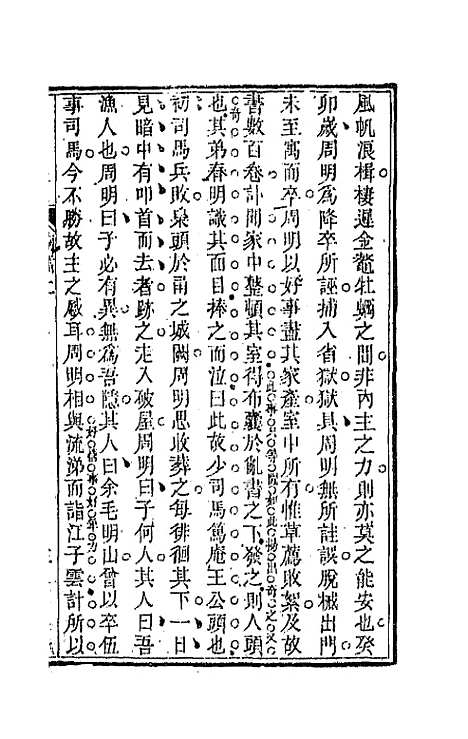 風帆浪楫棲遲金鼇牡蠣之間非內主之力則亦莫之能安也癸
卯歲周明為降卒所誣捕入省獄獄具周明無所詿誤脫械出門
未至寓而卒周明以好事盡其家產室中所有惟草薦敗絮及故
書數百卷訃聞家中整頓其室得布囊於亂書之下發之則人頭
也其弟春明識其面目捧之而泣曰此故少司馬篤庵王公頭也
初司馬兵敗梟頭於甬之城闕周明思收葬之每徘徊其下一日
見暗中有叩首而去者跡之走入破屋周明曰子何人其人曰吾
漁人也周明曰子必有異無為吾隱其人曰余毛明山曾以卒伍
事司馬今不勝故主之感耳周明相與流涕而詣江子雲計所以